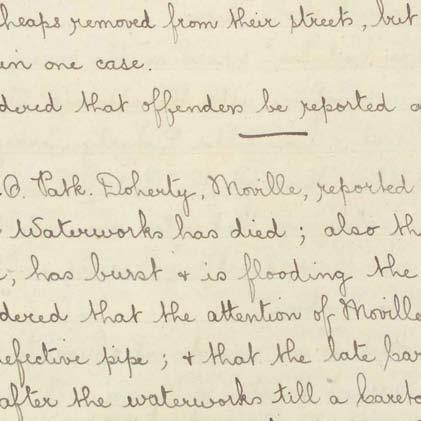 heaps removed from their streets, but
in one case.
dered that offenders be reported
.O. Patk. Doherty, Moville, reported
Waterworks has died ; also th
, has burst & is flooding the
dered that the attention of Moville
defective pipe ; & that the late Car
after the waterworks till a Careta